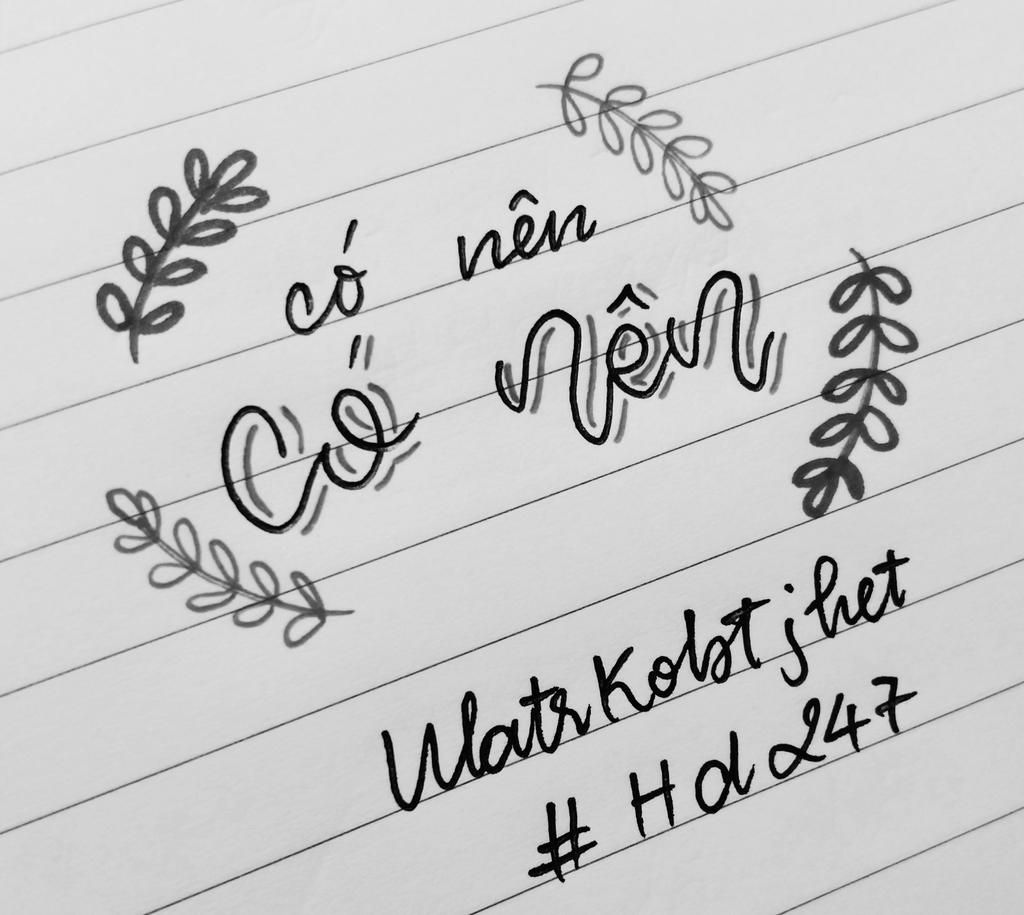 có nên
Có nên
WatrKobtjhet
# Hd247